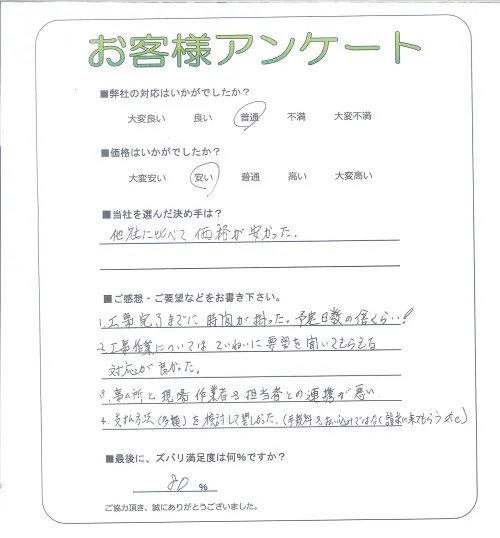 お客様アンケート
■弊社の対応はいかがでしたか？
大変良い 良い 普通 不満 大変不満
■価格はいかがでしたか？
大変安い 安い 普通 高い 大変高い
■当社を選んだ決め手は？
他社に比べて価格が安かった.
■ご感想・ご要望などをお書き下さい。
1. 工事完了までに時間が掛った. 予定日数の倍くらい!
2. 工事作業については ていねいに要望を聞いてもらえる
対応が良かった.
3. 事ム所と現場作業者&担当者との連携が悪い.
4. 支払方法(多種)を検討して望しかった. (手数料&ではなく請求に来てもらう
■最後に、ズバリ満足度は何%ですか？
80 %
ご協力頂き、誠にありがとうございました。